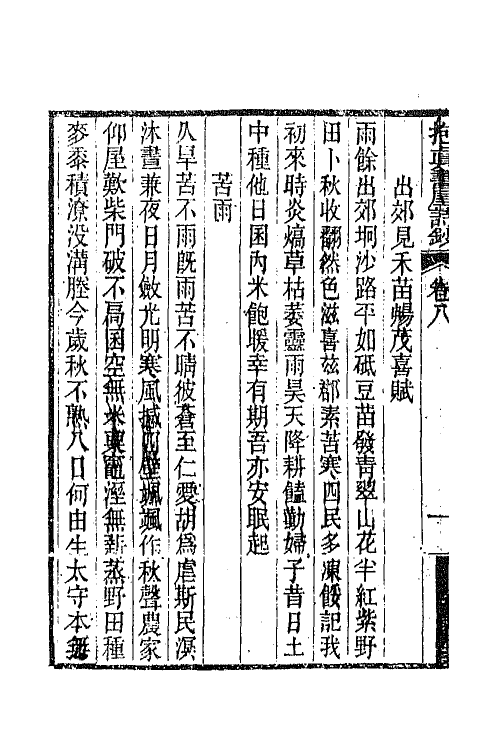 抱真書屋詩鈔 卷八 一
出郊見禾苗暢茂喜賦
雨餘出郊坰沙路平如砥豆苗發靑翠山花半紅紫野
田卜秋收翻然色滋喜玆郡素苦寒四民多凍餒記我
初來時炎熇草枯萎靈雨昊天降耕饁勤婦子昔日土
中種他日囷內米飽暖幸有期吾亦安眠起
苦雨
久旱苦不雨旣雨苦不晴彼蒼至仁愛胡爲虐斯民溟
沐晝兼夜日月斂光明寒風撼四壁颯颯作秋聲農家
仰屋歎柴門破不扃囷空無米𥻦竈溼無薪蒸野田種
麥黍積潦没溝塍今歲秋不熟八口何由生太守本無